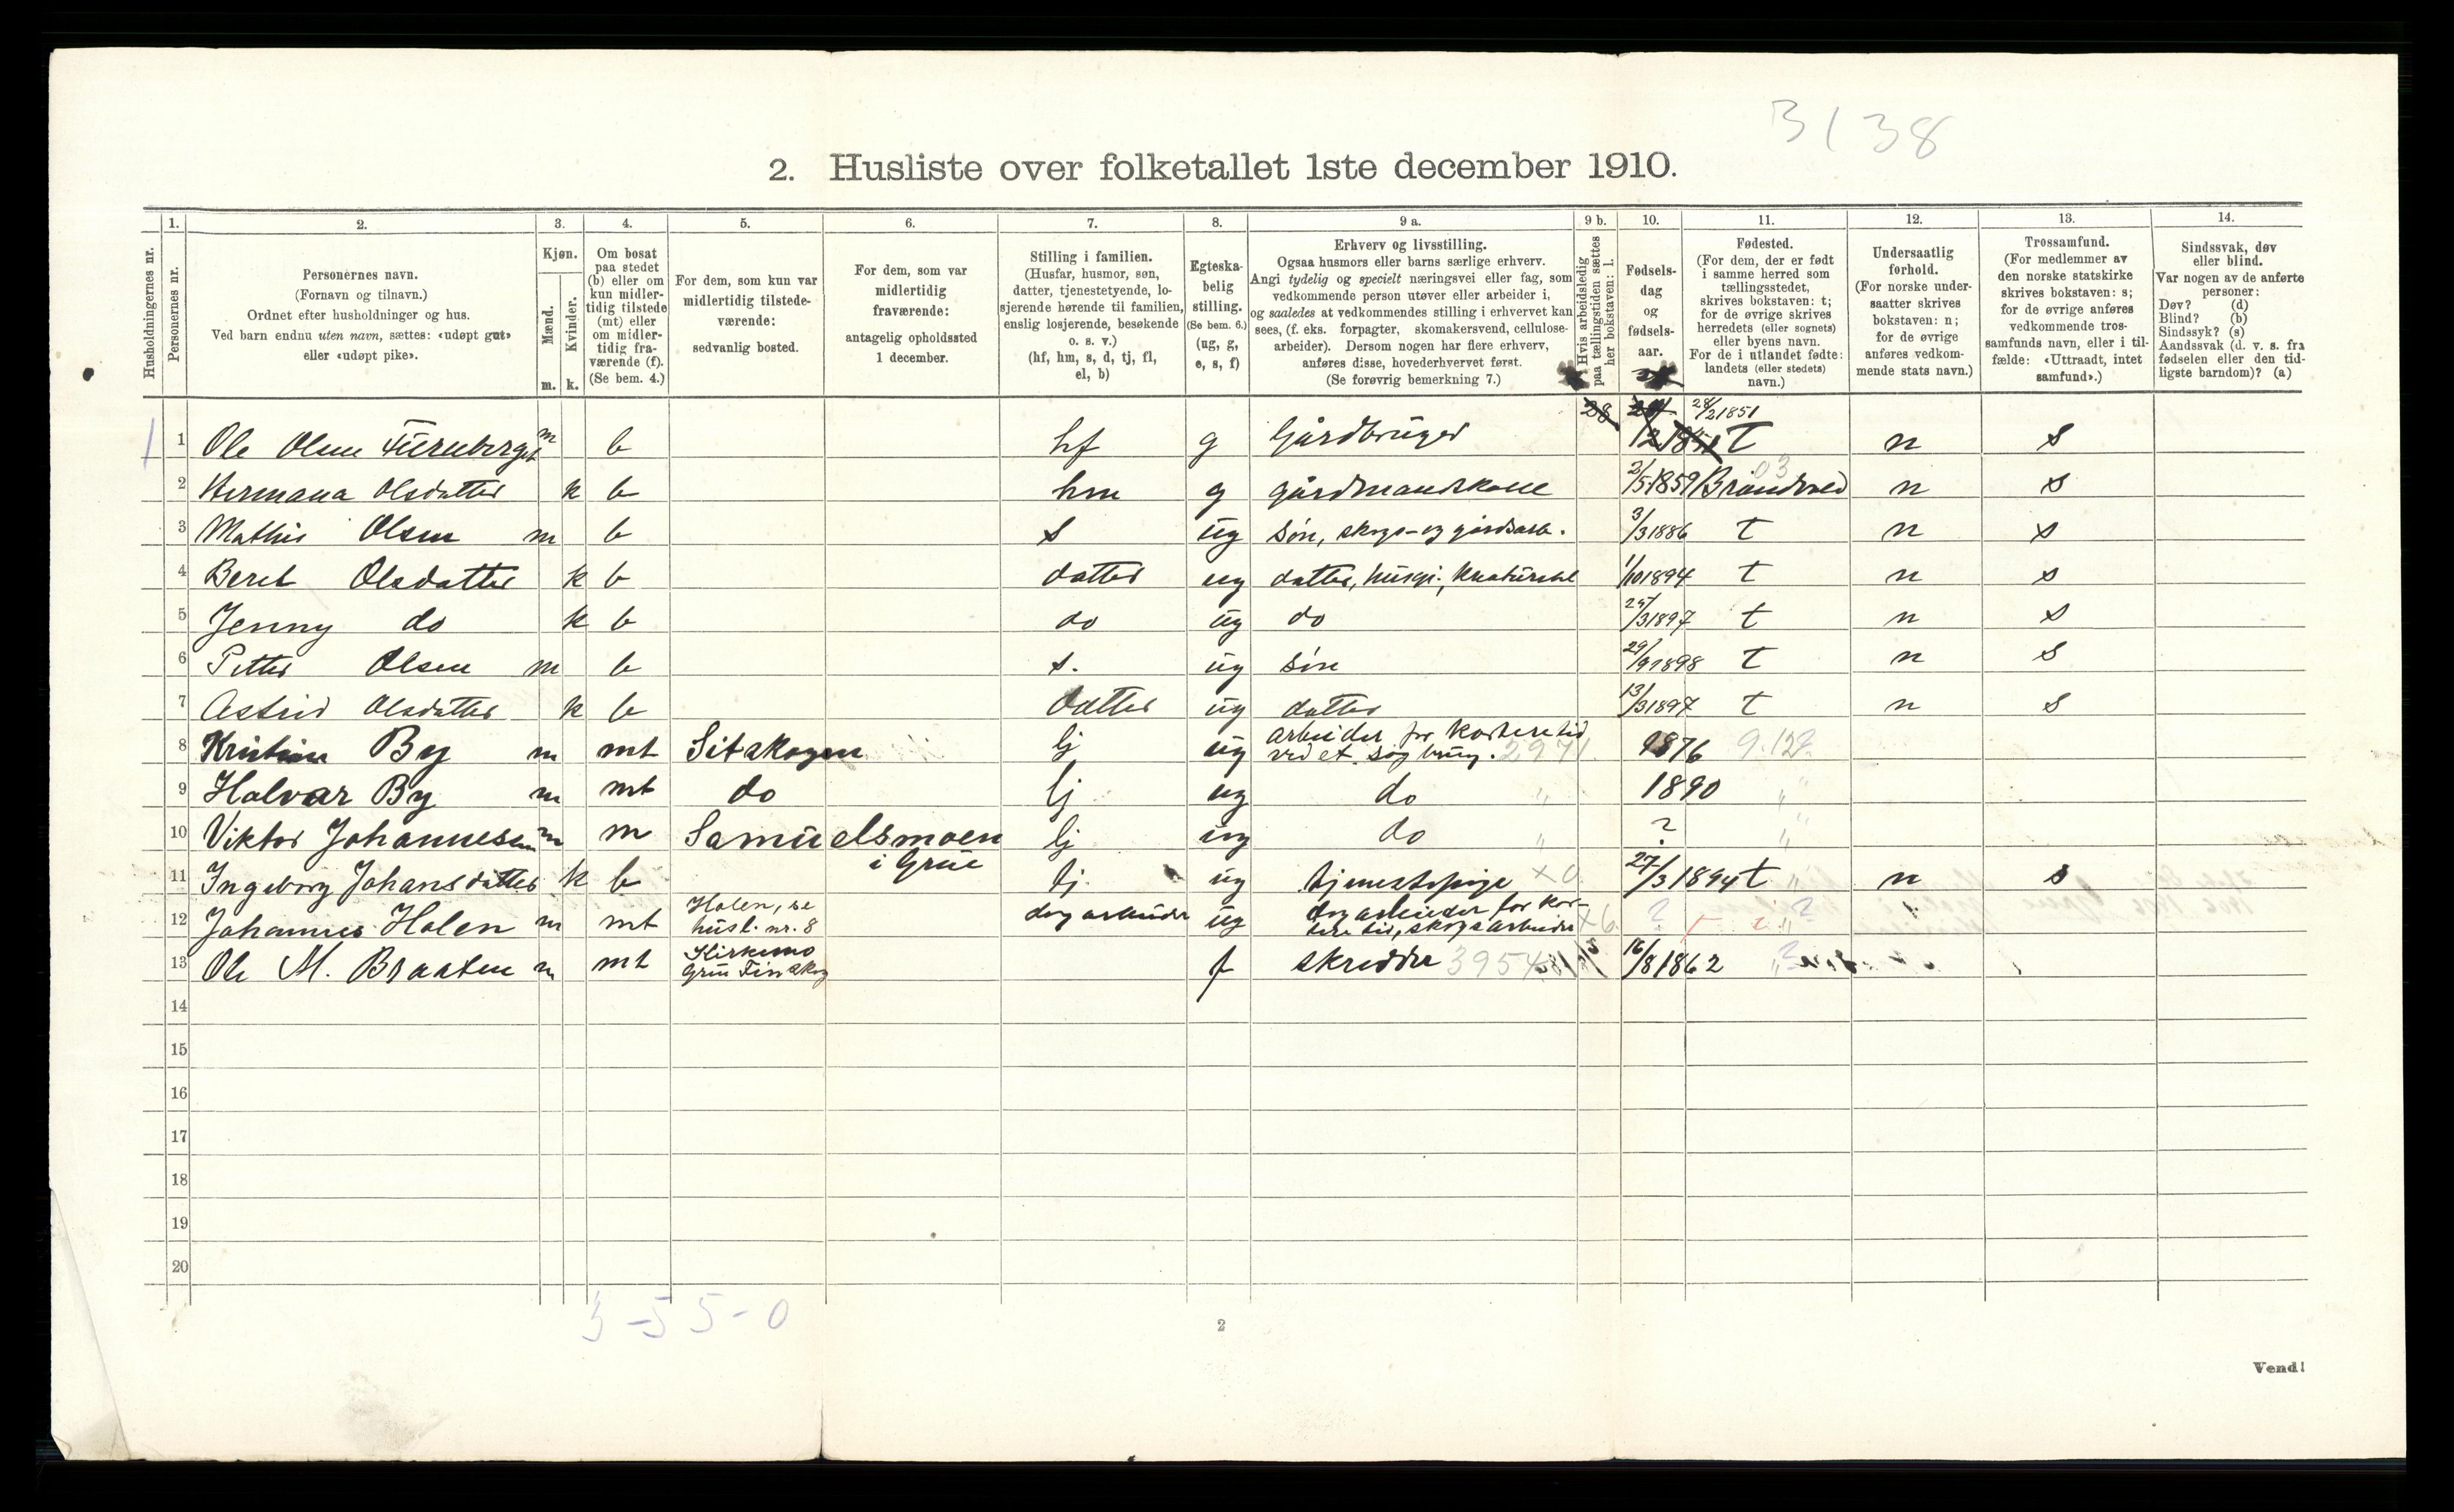 3138
2. Husliste over folketallet 1ste december 1910.
Husholdningernes nr.
1.
Personernes nr.
2.
Personernes navn.
(Fornavn og tilnavn.)
Ordnet efter husholdninger og hus.
Ved barn endnu uten navn, sættes: «udøpt gut»
eller «udøpt pike».
3.
Kjøn.
Mænd.
Kvinder.
m. k.
4.
Om bosat
paa stedet
(b) eller om
kun midler-
tidig tilstede
(mt) eller
om midler-
tidig fra-
værende (f).
(Se bem. 4.)
5.
For dem, som kun var
midlertidig tilstede-
værende:
sedvanlig bosted.
6.
For dem, som var
midlertidig
fraværende:
antagelig opholdssted
1 december.
7.
Stilling i familien.
(Husfar, husmor, søn,
datter, tjenestetyende, lo-
sjerende hørende til familien,
enslig losjerende, besøkende
o. s. v.)
(hf, hm, s, d, tj, fl,
el, b)
8.
Egteska-
belig
stilling.
(Se bem. 6.)
(ug, g,
e, s, f)
9 a.
Erhverv og livsstilling.
Ogsaa husmors eller barns særlige erhverv.
Angi tydelig og specielt næringsvei eller fag, som
vedkommende person utøver eller arbeider i,
og saaledes at vedkommendes stilling i erhvervet kan
sees, (f. eks. forpagter, skomakersvend, cellulose-
arbeider). Dersom nogen har flere erhverv,
anføres disse, hovederhvervet først.
(Se forøvrig bemerkning 7.)
9 b.
Hvis arbeidsledig
paa tællingstiden sættes
her bokstaven: l.
10.
Fødsels-
dag
og
fødsels-
aar.
11.
Fødested.
(For dem, der er født
i samme herred som
tællingsstedet,
skrives bokstaven: t;
for de øvrige skrives
herredets (eller sognets)
eller byens navn.
For de i utlandet fødte:
landets (eller stedets)
navn.)
12.
Undersaatlig
forhold.
(For norske under-
saatter skrives
bokstaven: n;
for de øvrige
anføres vedkom-
mende stats navn.)
13.
Trossamfund.
(For medlemmer av
den norske statskirke
skrives bokstaven: s;
for de øvrige anføres
vedkommende tros-
samfunds navn, eller i til-
fælde: «Uttraadt, intet
samfund».)
14.
Sindssvak, døv
eller blind.
Var nogen av de anførte
personer:
Døv? (d)
Blind? (b)
Sindssyk? (s)
Aandssvak (d. v. s. fra
fødselen eller den tid-
ligste barndom)? (a)
1 Ole Olsen Furuberget m b hf g Gårdbruger 28/2 1851 t n s
2 Hermana Olsdatter k b hm g gårdmandskone 2/5 1859 Brandvold 03 n s
3 Mathis Olsen m b s ug Søn, skogs- og gårdsarb. 3/3 1886 t n s
4 Beret Olsdatter k b datter ug datter, husgj., kreaturstel 1/10 1894 t n s
5 Jenny do k b do ug do 25/3 1897 t n s
6 Petter Olsen m b s. ug søn 29/9 1898 t n s
7 Astrid Olsdatter k b datter ug datter 13/3 1897 t n s
8 Kristian By m mt Sitskogen lj ug arbeider for kortere tid
ved et sagbrug. 2971. 1876 9.129.
9 Halvar By m mt do lj ug do " 1890 "
10 Viktor Johannesen m m Samuelsmoen
i Grue lj ug do " ? "
11 Ingeborg Johansdatter k b tj. ug tjenestepige x0 27/3 1894 t n s
12 Johannes Holen m mt Holen, se
husl. nr. 8 dagarbeider ug dagarbeider for kor-
tere tid, skogsarbeider x6 ? ?
13 Ole M. Braaten m mt Kirkemo
Grue Finskog f skredder 3954 16/8 1862
14
15
16
17
18
19
20
3 - 5 5 - 0
2
Vend!